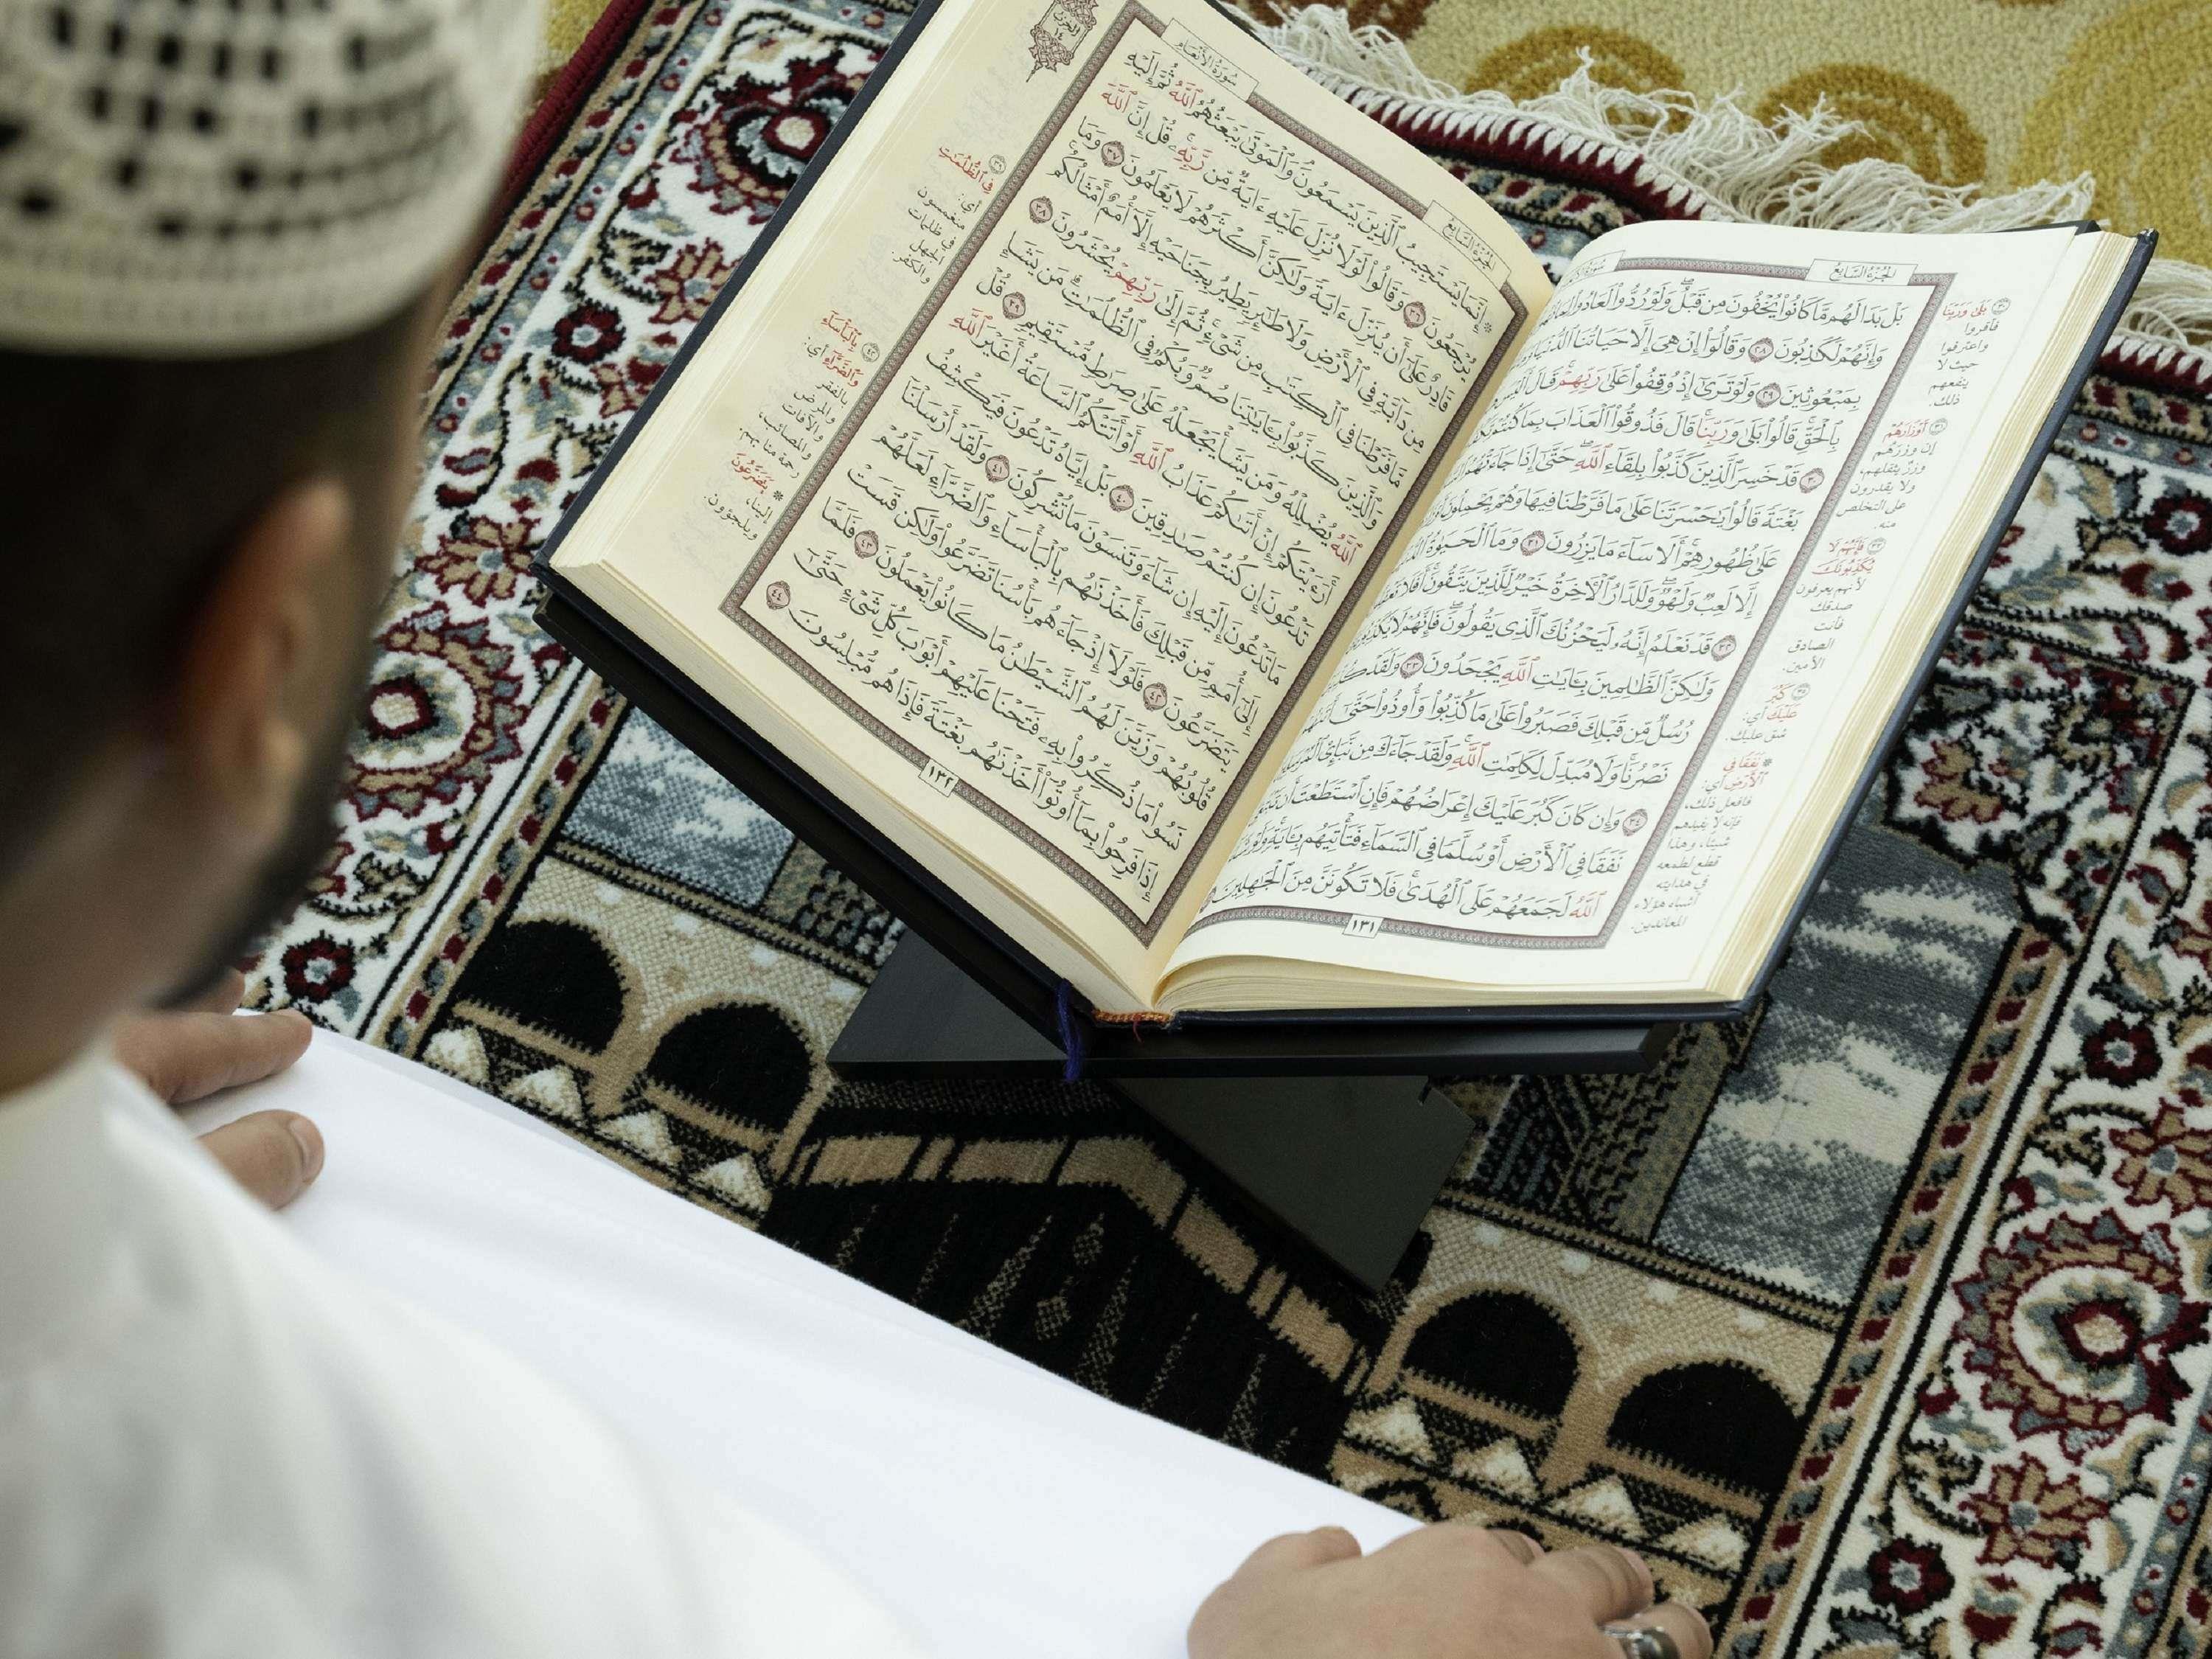 الجزء السابع
بَلْ بَدَا لَهُم مَّا كَانُوا۟ يُخْفُونَ مِن قَبْلُ ۖ وَلَوْ رُدُّوا۟ لَعَادُوا۟
وَإِنَّهُمْ لَكَٰذِبُونَ ٢٨ وَقَالُوٓا۟ إِنْ هِىَ إِلَّا حَيَاتُنَا ٱلدُّنْيَا
بِمَبْعُوثِينَ ٢٩ وَلَوْ تَرَىٰٓ إِذْ وُقِفُوا۟ عَلَىٰ رَبِّهِمْ ۚ قَالَ أَلَيْسَ
بِٱلْحَقِّ ۚ قَالُوا۟ بَلَىٰ وَرَبِّنَا ۚ قَالَ فَذُوقُوا۟ ٱلْعَذَابَ بِمَا كُنتُمْ
٣٠ قَدْ خَسِرَ ٱلَّذِينَ كَذَّبُوا۟ بِلِقَآءِ ٱللَّهِ ۖ حَتَّىٰٓ إِذَا جَآءَتْهُمُ
بَغْتَةً قَالُوا۟ يَٰحَسْرَتَنَا عَلَىٰ مَا فَرَّطْنَا فِيهَا وَهُمْ يَحْمِلُونَ
عَلَىٰ ظُهُورِهِمْ ۚ أَلَا سَآءَ مَا يَزِرُونَ ٣١ وَمَا ٱلْحَيَوٰةُ
إِلَّا لَعِبٌ وَلَهْوٌ ۖ وَلَلدَّارُ ٱلْءَاخِرَةُ خَيْرٌ لِّلَّذِينَ يَتَّقُونَ ۗ أَفَلَا
٣٢ قَدْ نَعْلَمُ إِنَّهُۥ لَيَحْزُنُكَ ٱلَّذِى يَقُولُونَ ۖ فَإِنَّهُمْ لَا
وَلَٰكِنَّ ٱلظَّٰلِمِينَ بِـَٔايَٰتِ ٱللَّهِ يَجْحَدُونَ ٣٣ وَلَقَدْ
رُسُلٌ مِّن قَبْلِكَ فَصَبَرُوا۟ عَلَىٰ مَا كُذِّبُوا۟ وَأُوذُوا۟ حَتَّىٰٓ
نَصْرُنَا ۚ وَلَا مُبَدِّلَ لِكَلِمَٰتِ ٱللَّهِ ۚ وَلَقَدْ جَآءَكَ مِن نَّبَإِى۟
٣٤ وَإِن كَانَ كَبُرَ عَلَيْكَ إِعْرَاضُهُمْ فَإِنِ ٱسْتَطَعْتَ أَن
نَفَقًا فِى ٱلْأَرْضِ أَوْ سُلَّمًا فِى ٱلسَّمَآءِ فَتَأْتِيَهُم بِـَٔايَةٍ ۚ وَلَوْ
ٱللَّهُ لَجَمَعَهُمْ عَلَى ٱلْهُدَىٰ ۚ فَلَا تَكُونَنَّ مِنَ ٱلْجَٰهِلِينَ
١٣١
بَلَىٰ وَرَبِّنَا
فأقروا
واعترفوا
حيث لا
ينفعهم
ذلك.
أَوْزَارَهُمْ
إن وزرهم
وزر يثقلهم،
ولا يقدرون
على التخلص
منه.
فَإِنَّهُمْ لَا
يُكَذِّبُونَكَ
لأنهم يعرفون
صدقك
فأنت
الصادق
الأمين.
كَبُرَ
عَلَيْكَ أي:
شق عليك.
نَفَقًا فِى
ٱلْأَرْضِ أي:
فافعل ذلك،
فإنه لا يفيدهم
شيئا، وهذا
قطع لطمعه
في هدايته
أشباه هؤلاء
المعاندين.
سورة الأنعام
الجزء السابع
إِنَّمَا يَسْتَجِيبُ ٱلَّذِينَ يَسْمَعُونَ ۘ وَٱلْمَوْتَىٰ يَبْعَثُهُمُ ٱللَّهُ ثُمَّ إِلَيْهِ
يُرْجَعُونَ ٣٦ وَقَالُوا۟ لَوْلَا نُزِّلَ عَلَيْهِ ءَايَةٌ مِّن رَّبِّهِۦ ۚ قُلْ إِنَّ ٱللَّهَ
قَادِرٌ عَلَىٰٓ أَن يُنَزِّلَ ءَايَةً وَلَٰكِنَّ أَكْثَرَهُمْ لَا يَعْلَمُونَ ٣٧ وَمَا
مِن دَآبَّةٍ فِى ٱلْأَرْضِ وَلَا طَٰٓئِرٍ يَطِيرُ بِجَنَاحَيْهِ إِلَّآ أُمَمٌ أَمْثَالُكُم ۚ
مَّا فَرَّطْنَا فِى ٱلْكِتَٰبِ مِن شَىْءٍ ۚ ثُمَّ إِلَىٰ رَبِّهِمْ يُحْشَرُونَ ٣٨
وَٱلَّذِينَ كَذَّبُوا۟ بِـَٔايَٰتِنَا صُمٌّ وَبُكْمٌ فِى ٱلظُّلُمَٰتِ ۗ مَن يَشَإِ
ٱللَّهُ يُضْلِلْهُ وَمَن يَشَأْ يَجْعَلْهُ عَلَىٰ صِرَٰطٍ مُّسْتَقِيمٍ ٣٩ قُلْ
أَرَءَيْتَكُمْ إِنْ أَتَىٰكُمْ عَذَابُ ٱللَّهِ أَوْ أَتَتْكُمُ ٱلسَّاعَةُ أَغَيْرَ ٱللَّهِ
تَدْعُونَ إِن كُنتُمْ صَٰدِقِينَ ٤٠ بَلْ إِيَّاهُ تَدْعُونَ فَيَكْشِفُ
مَا تَدْعُونَ إِلَيْهِ إِن شَآءَ وَتَنسَوْنَ مَا تُشْرِكُونَ ٤١ وَلَقَدْ أَرْسَلْنَآ
إِلَىٰٓ أُمَمٍ مِّن قَبْلِكَ فَأَخَذْنَٰهُم بِٱلْبَأْسَآءِ وَٱلضَّرَّآءِ لَعَلَّهُمْ
يَتَضَرَّعُونَ ٤٢ فَلَوْلَآ إِذْ جَآءَهُم بَأْسُنَا تَضَرَّعُوا۟ وَلَٰكِن قَسَتْ
قُلُوبُهُمْ وَزَيَّنَ لَهُمُ ٱلشَّيْطَٰنُ مَا كَانُوا۟ يَعْمَلُونَ ٤٣ فَلَمَّا
نَسُوا۟ مَا ذُكِّرُوا۟ بِهِۦ فَتَحْنَا عَلَيْهِمْ أَبْوَٰبَ كُلِّ شَىْءٍ حَتَّىٰٓ
إِذَا فَرِحُوا۟ بِمَآ أُوتُوٓا۟ أَخَذْنَٰهُم بَغْتَةً فَإِذَا هُم مُّبْلِسُونَ ٤٤
١٣٢
فِى ٱلظُّلُمَٰتِ
أي:
منغمسون
في ظلمات
الجهل
والكفر.
بِٱلْبَأْسَآءِ
وَٱلضَّرَّآءِ أي:
بالفقر
والمرض
والآفات
والمصائب،
رحمة منا بهم.
يَتَضَرَّعُونَ
إلينا،
ويلجؤون